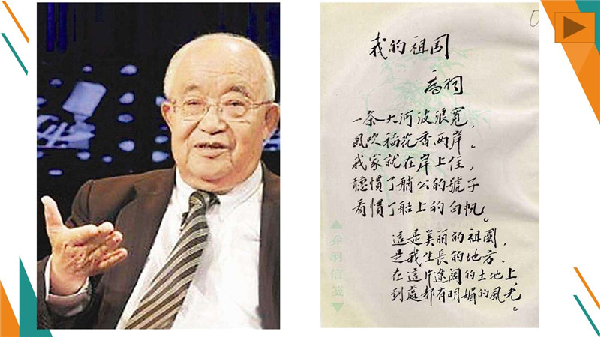 我的祖国
一条大河波浪宽，
风吹稻花香两岸。
我家就在岸上住，
聽慣了艄公的號子
看慣了船上的白帆。
這是美丽的祖国，
是我生長的地方.
在這片辽阔的土地上
到處都有明媚的風光